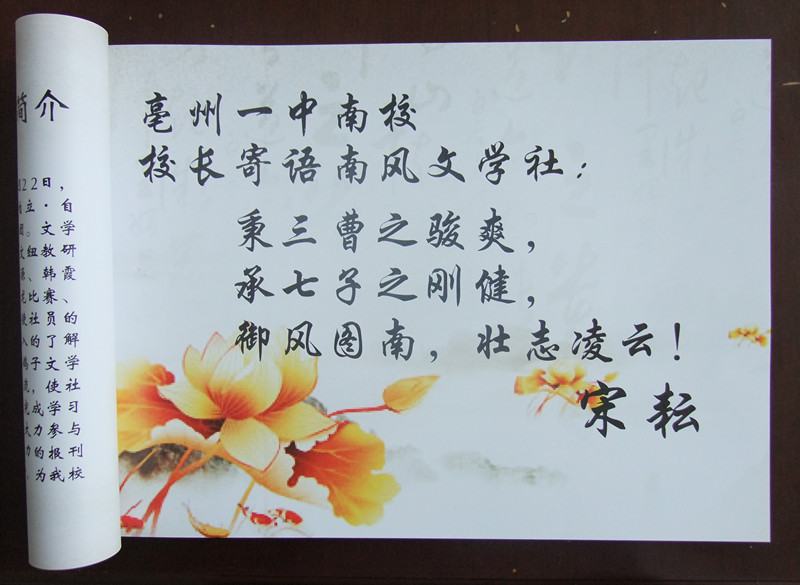 亳州一中南校
校长寄语南风文学社：
秉三曹之骏爽，
承七子之刚健，
御风图南，壮志凌云！
宋耘
简介
22日，
立·自
。文学
组教研
、韩霞
比赛、
社员的
的了解
子文学
，使社
成学习
力参与
的报刊
为我校